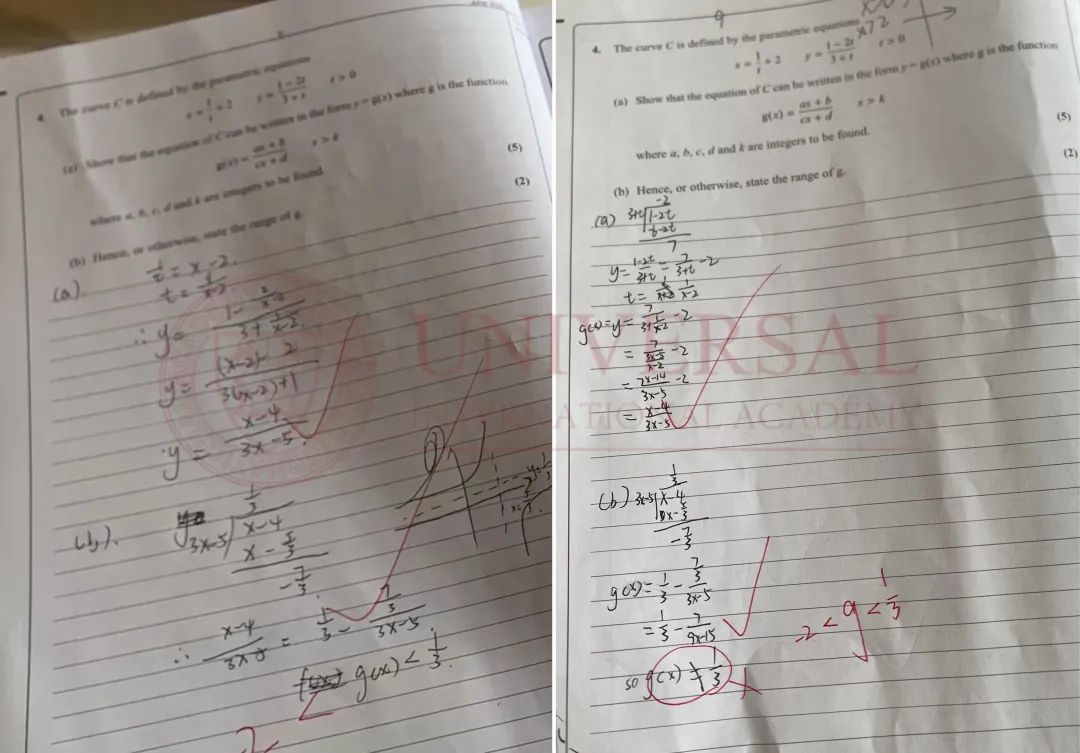 4. The curve C is defined by the parametric equations
x = 1/t + 2 y = (1 − 2t)/(3 + t) t > 0
(a) Show that the equation of C can be written in the form y = g(x) where g is the function
g(x) = (ax + b)/(cx + d) x > k
(5)
where a, b, c, d and k are integers to be found.
(2)
(b) Hence, or otherwise, state the range of g.
(a). 1/t = x − 2.
t = 1/(x−2)
∴ y = (1 − 2/(x−2))/(3 + 1/(x−2))
y = ((x−2) − 2)/(3(x−2)+1)
y = (x−4)/(3x−5).
(b). 1/3
3x−5 x−4
x − 5/3
−7/3
∴ (x−4)/(3x−5) = 1/3 − (7/3)/(3x−5)
g(x) < 1/3.
y=1/3
9
4. The curve C is defined by the parametric equations
x = 1/t + 2 y = (1 − 2t)/(3 + t) t > 0
(a) Show that the equation of C can be written in the form y = g(x) where g is the function
g(x) = (ax + b)/(cx + d) x > k
(5)
where a, b, c, d and k are integers to be found.
(2)
(b) Hence, or otherwise, state the range of g.
(a) −2
3+t 1−2t
−6−2t
7
y = (1−2t)/(3+t) = 7/(3+t) − 2
t = 1/(x−2)
g(x) = y = 7/(3+1/(x−2)) − 2
= 7/((3x−5)/(x−2)) − 2
= (7x−14)/(3x−5) − 2
= (x−4)/(3x−5)
(b) 1/3
3x−5 x−4
x−5/3
−7/3
g(x) = 1/3 − (7/3)/(3x−5)
= 1/3 − 7/(9x−15)
−2 < g < 1/3
so g(x) ≠ 1/3
UNIVERSAL
INTERNATIONAL ACADEMY